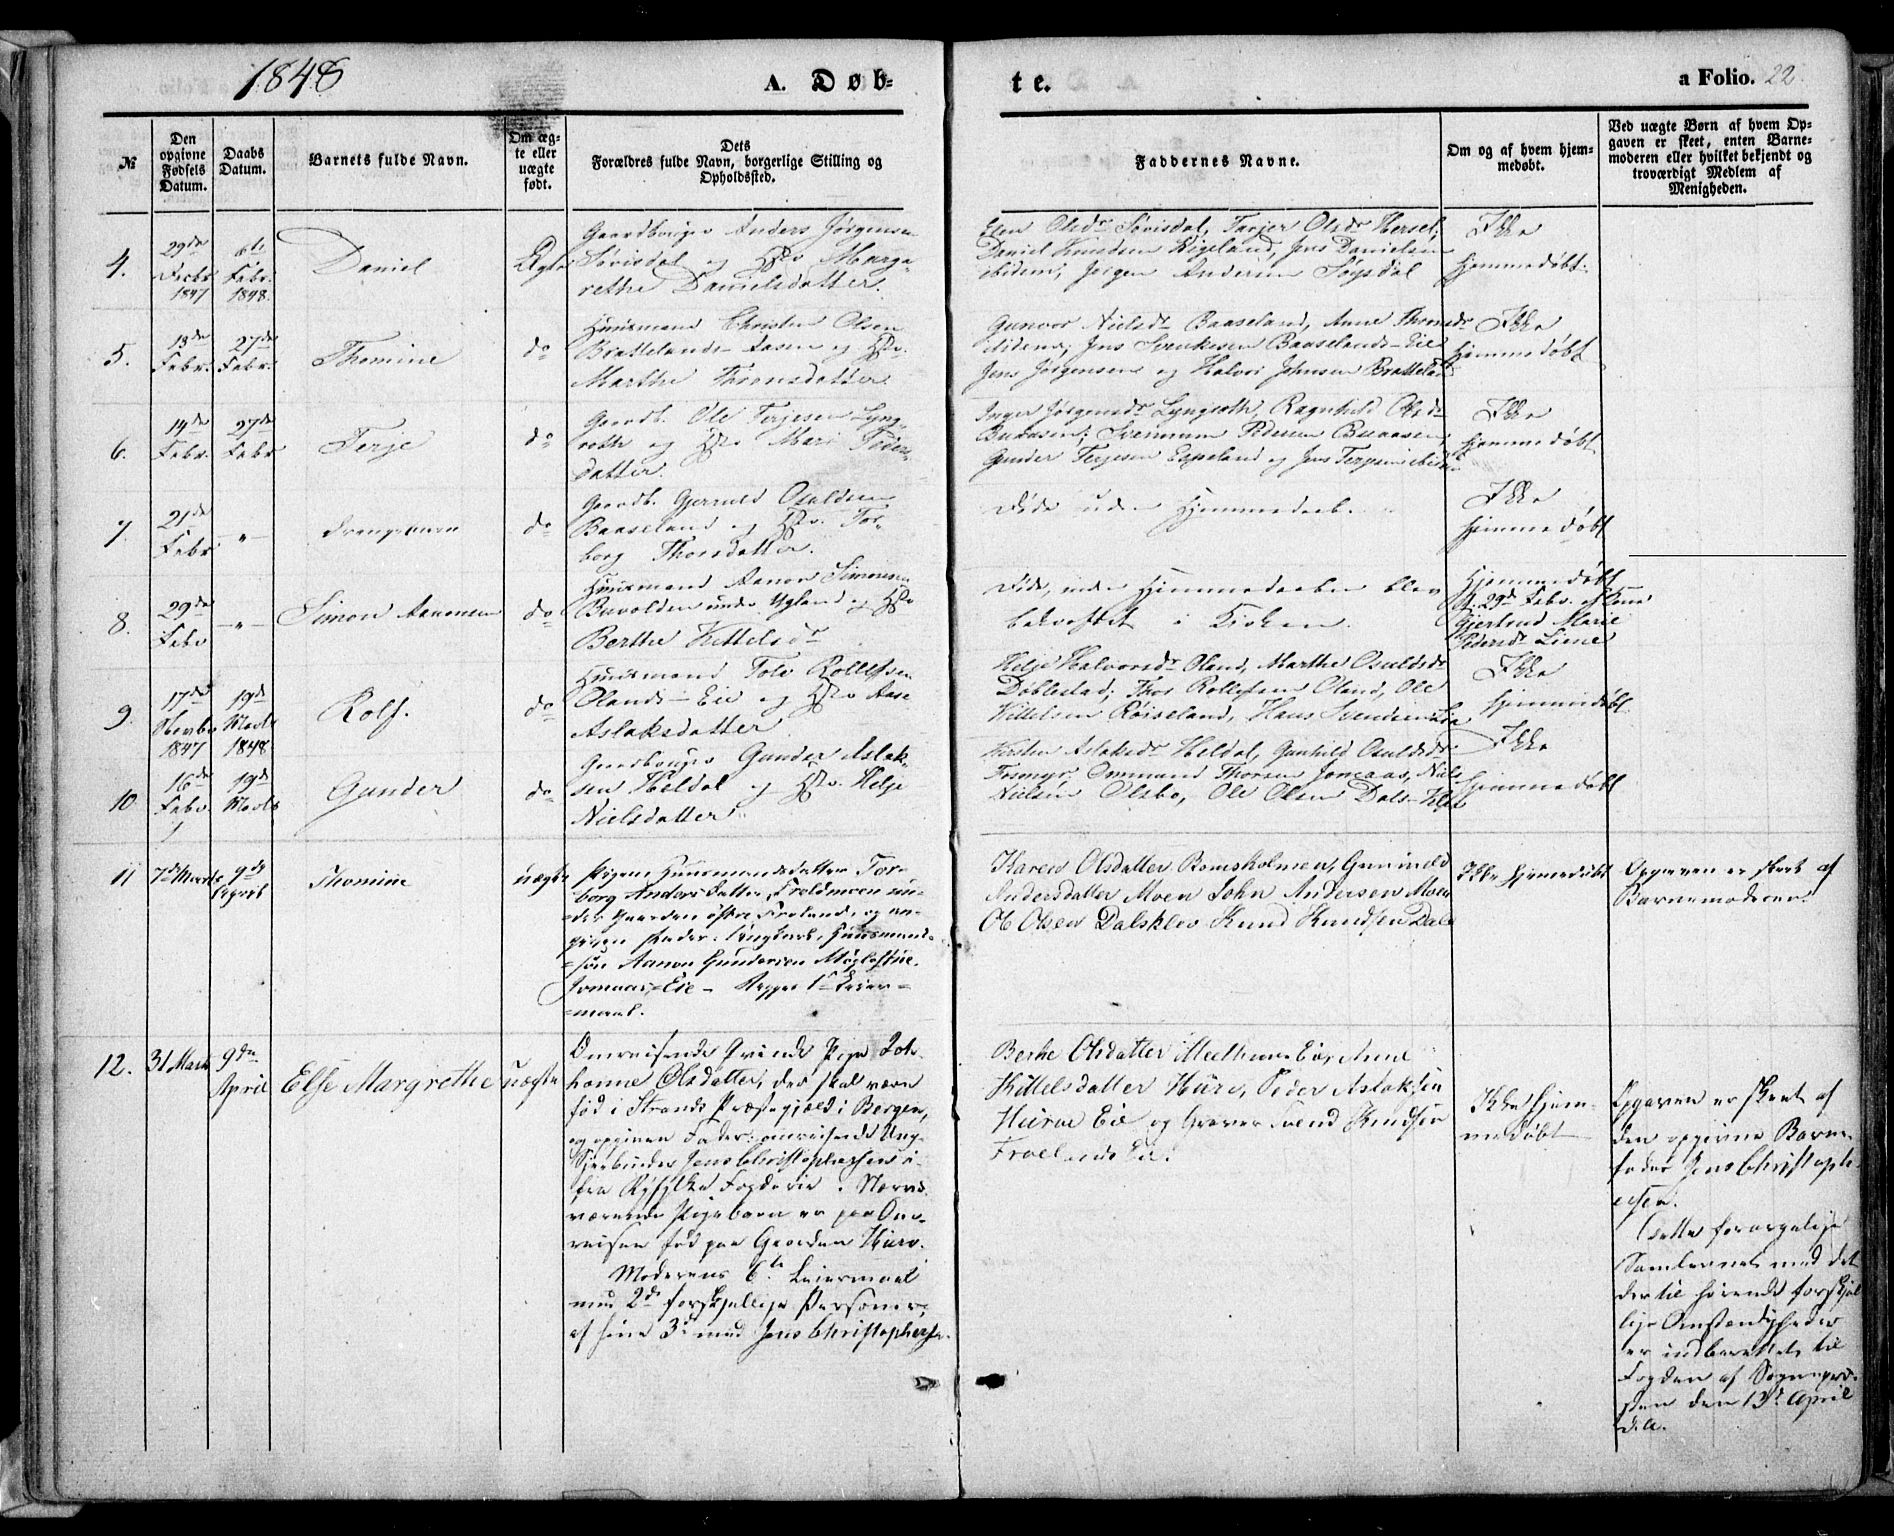 1848
A. Døb-
te.
a Folio. 22.
№
Den opgivne Fødsels Datum.
Daabs Datum.
Barnets fulde Navn.
Om ægte eller uægte født.
Dets
Forældres fulde Navn, borgerlige Stilling og
Opholdssted.
Faddernes Navne.
Om og af hvem hjem-
medøbt.
Ved uægte Børn af hvem Op-
gaven er skeet, enten Barne-
moderen eller hvilket bekjendt og
troværdigt Medlem af
Menigheden.
4.
29de
Decbr
1847
6te
Febr.
1848.
Daniel
Ægte
Gaardbruger Anders Jørgensen
og Hstr Marga-
rethe Danielsdatter.
Olsdr Søvisdal, Tarjer Olsdr Hersel,
Daniel Knudsen Rigeland, Jens Danielsen
ibidem; Jørgen Andersen
Ikke
hjemmedøbt.
5.
13de
Febr.
27de
Febr.
Thomine
do
Huusmand Christen Olsen
Brattelands-Aasen og Hstr.
Marthe Thronsdatter.
Gunvor Nielsdr Baaseland, Anne Thronsdr
ibidem; Jens Svenkesen Baaselands-Eie
Jens Jørgensen og Halvor Johnsen Brattelan
Ikke
hjemmedøbt
6.
14de
Febr.
27de
Febr
Terje
do
Gaardb. Ole Terjesen Lyng-
roth og Hstr Mari Peders-
datter.
Inger Jørgensdr Lyngroth, Ragnhild Olsdr
Buaasen; Svennum Pedersen Buaasen,
Gunder Terjesen Espeland og Jens Terjesen ibidem
Ikke
hjemmedøbt
7.
21de
Febr
-"-
Drengebarn
do
Gaardb. Gjeruld Osuldsen
Baaseland og Hstr. Tor-
borg Thorsdatter.
Døde uden Hjemmedaab.
Ikke
hjemmedøbt
8.
29de
Febr
-"-
Simon Aanonsen
do
Huusmand Aanon Simonsen
Buvolden under Ugland og Hstr
Berthe Kittelsdr
Døde, inden Hjemmedaaben blev
bekræftet i Kirken.
Hjemmedøbt
d. 29de Febr. af
Gjertrud Marie
Pedersdr Liene
9.
17de
Novbr
1847
19de
Marts
1848.
Rolf.
do
Huusmand Tolv Rollefsen
Olands-Eie og Hstr Aase
Aslaksdatter
Helje Halvorsdr Oland, Marthe Osuldsdr
Døblestad; Thor Rollefsen Oland, Ole
Kittelsen Røiseland, Hans Svendsen
Ikke
hjemmedøbt
10
16de
Febr
19de
Marts
Gunder
do
Gaardbruger Gunder Aslak-
sen Heldal og Hstr. Helje
Nielsdatter.
Kirsten Aslaksdr Heldal, Gunhild Osuldsdr
Ommund Thorsen Jomaas, Niels
Nielsen Olsbo, Ole Olsen Dals-Klev
Ikke
hjemmedøbt
11
7de Marts
9de
April
Thomine
uægte
Pigen Huusmandsdatter Tor-
borg Andersdatter Froldmoen un-
der Gaarden østre Froland, og an-
given Fader: Ungkarl, Huusmand-
søn Aanon Gundersen Møglestue.
Jomaas-Eie - Begges 1ste Leier-
maal.
Karen Olsdatter Bomsholmen, Gunnild
Andersdatter Moen John Andersen Moen
Ole Olsen Dalsklev Knud Knudsen Dale
Ikke hjemmedøbt
Opgaven er skeet af
Barnemoderen.
12.
31 Marts
9de
April
Else Margrethe
uægte
Omreisende Qvinde Pige Jo-
hanne Olsdatter, der skal være
fød i Strands Præstegjeld i Bergen,
og opgiven Fader: omreisende Ung-
Jens Christophersen i-
fra Ryfylke Fogderie. Nærvæ-
værende Pigebarn er paa Om-
reisen født paa Gaarden Hurv.
Moderens 6te Leiermaal
med 2de forskjellige Personer,
af hine 3de med Jens Christophersen.
Berthe Olsdatter Eie, Anne
Kittelsdatter Hurv, Peder Aslaksen
Hurve Eie og Graver Svend Knudsen
Frolands Eie.
Ikke hjem-
medøbt
Opgaven er skeet af
den opgivne Barne-
fader Jens Christoph-
ersen.
Dette forargelige
Samlevnet med det
dertil hørende forskjel-
lige Omstændigheder
er indberettet til
Fogden af Sognepræ-
sten den 13de April
d.A.